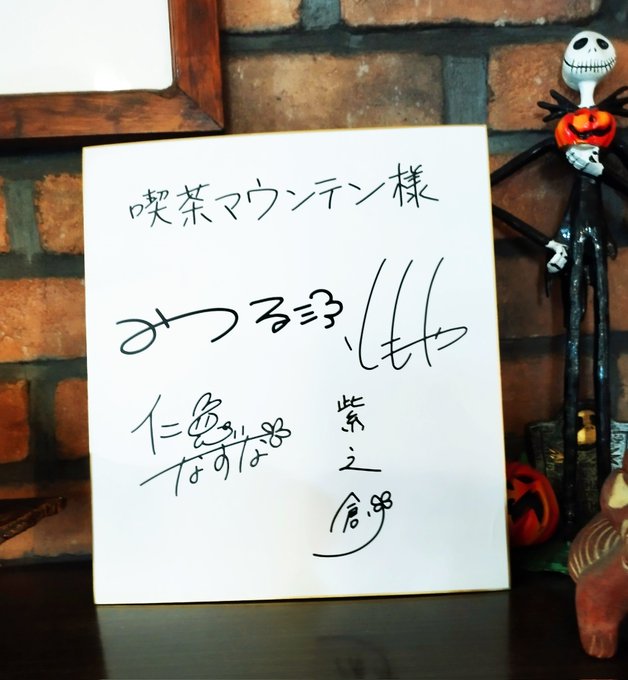 喫茶マウンテン様
みつる
ともや
仁兎なずな
紫之
創